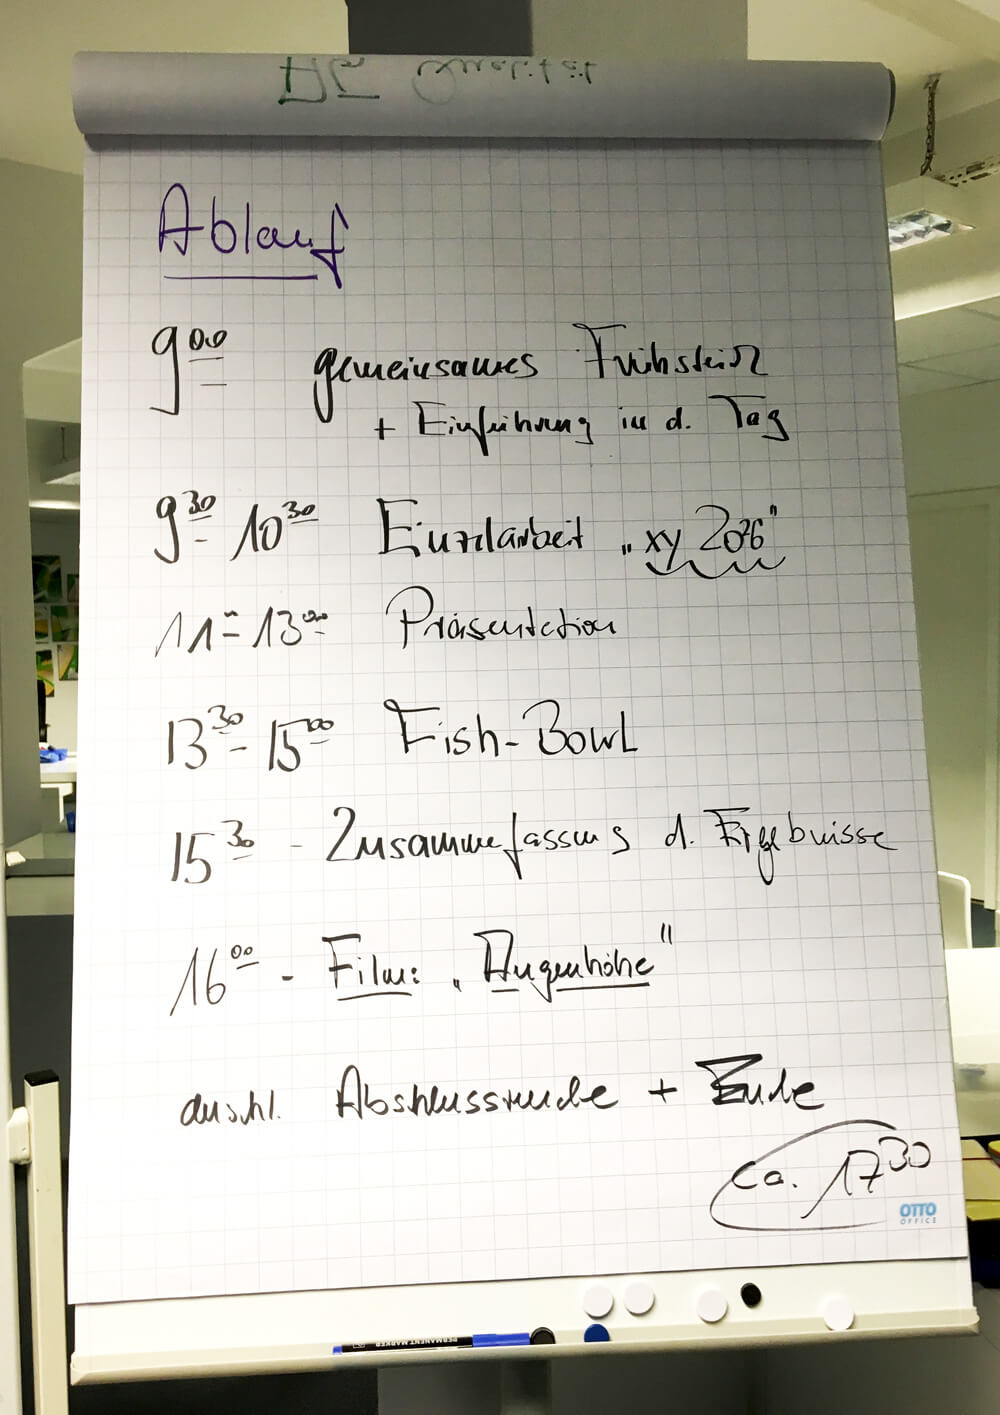 AG Qualität
Ablauf
9⁰⁰ gemeinsames Frühstück
+ Einführung in d. Tag
9³⁰ - 10³⁰ Einzelarbeit „xy 2026“
11⁰⁰ - 13⁰⁰ Präsentation
13³⁰ - 15⁰⁰ Fish-Bowl
15³⁰ - Zusammenfassung d. Ergebnisse
16⁰⁰ - Film: „Augenhöhe“
anschl. Abschlussrunde + Ende
ca. 17³⁰
OTTO
OFFICE
PERMANENT MARKER